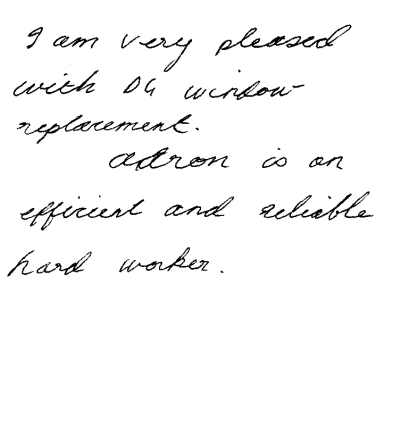 I am very pleased
with DG window
replacement.
is an
efficient and reliable
hard worker.